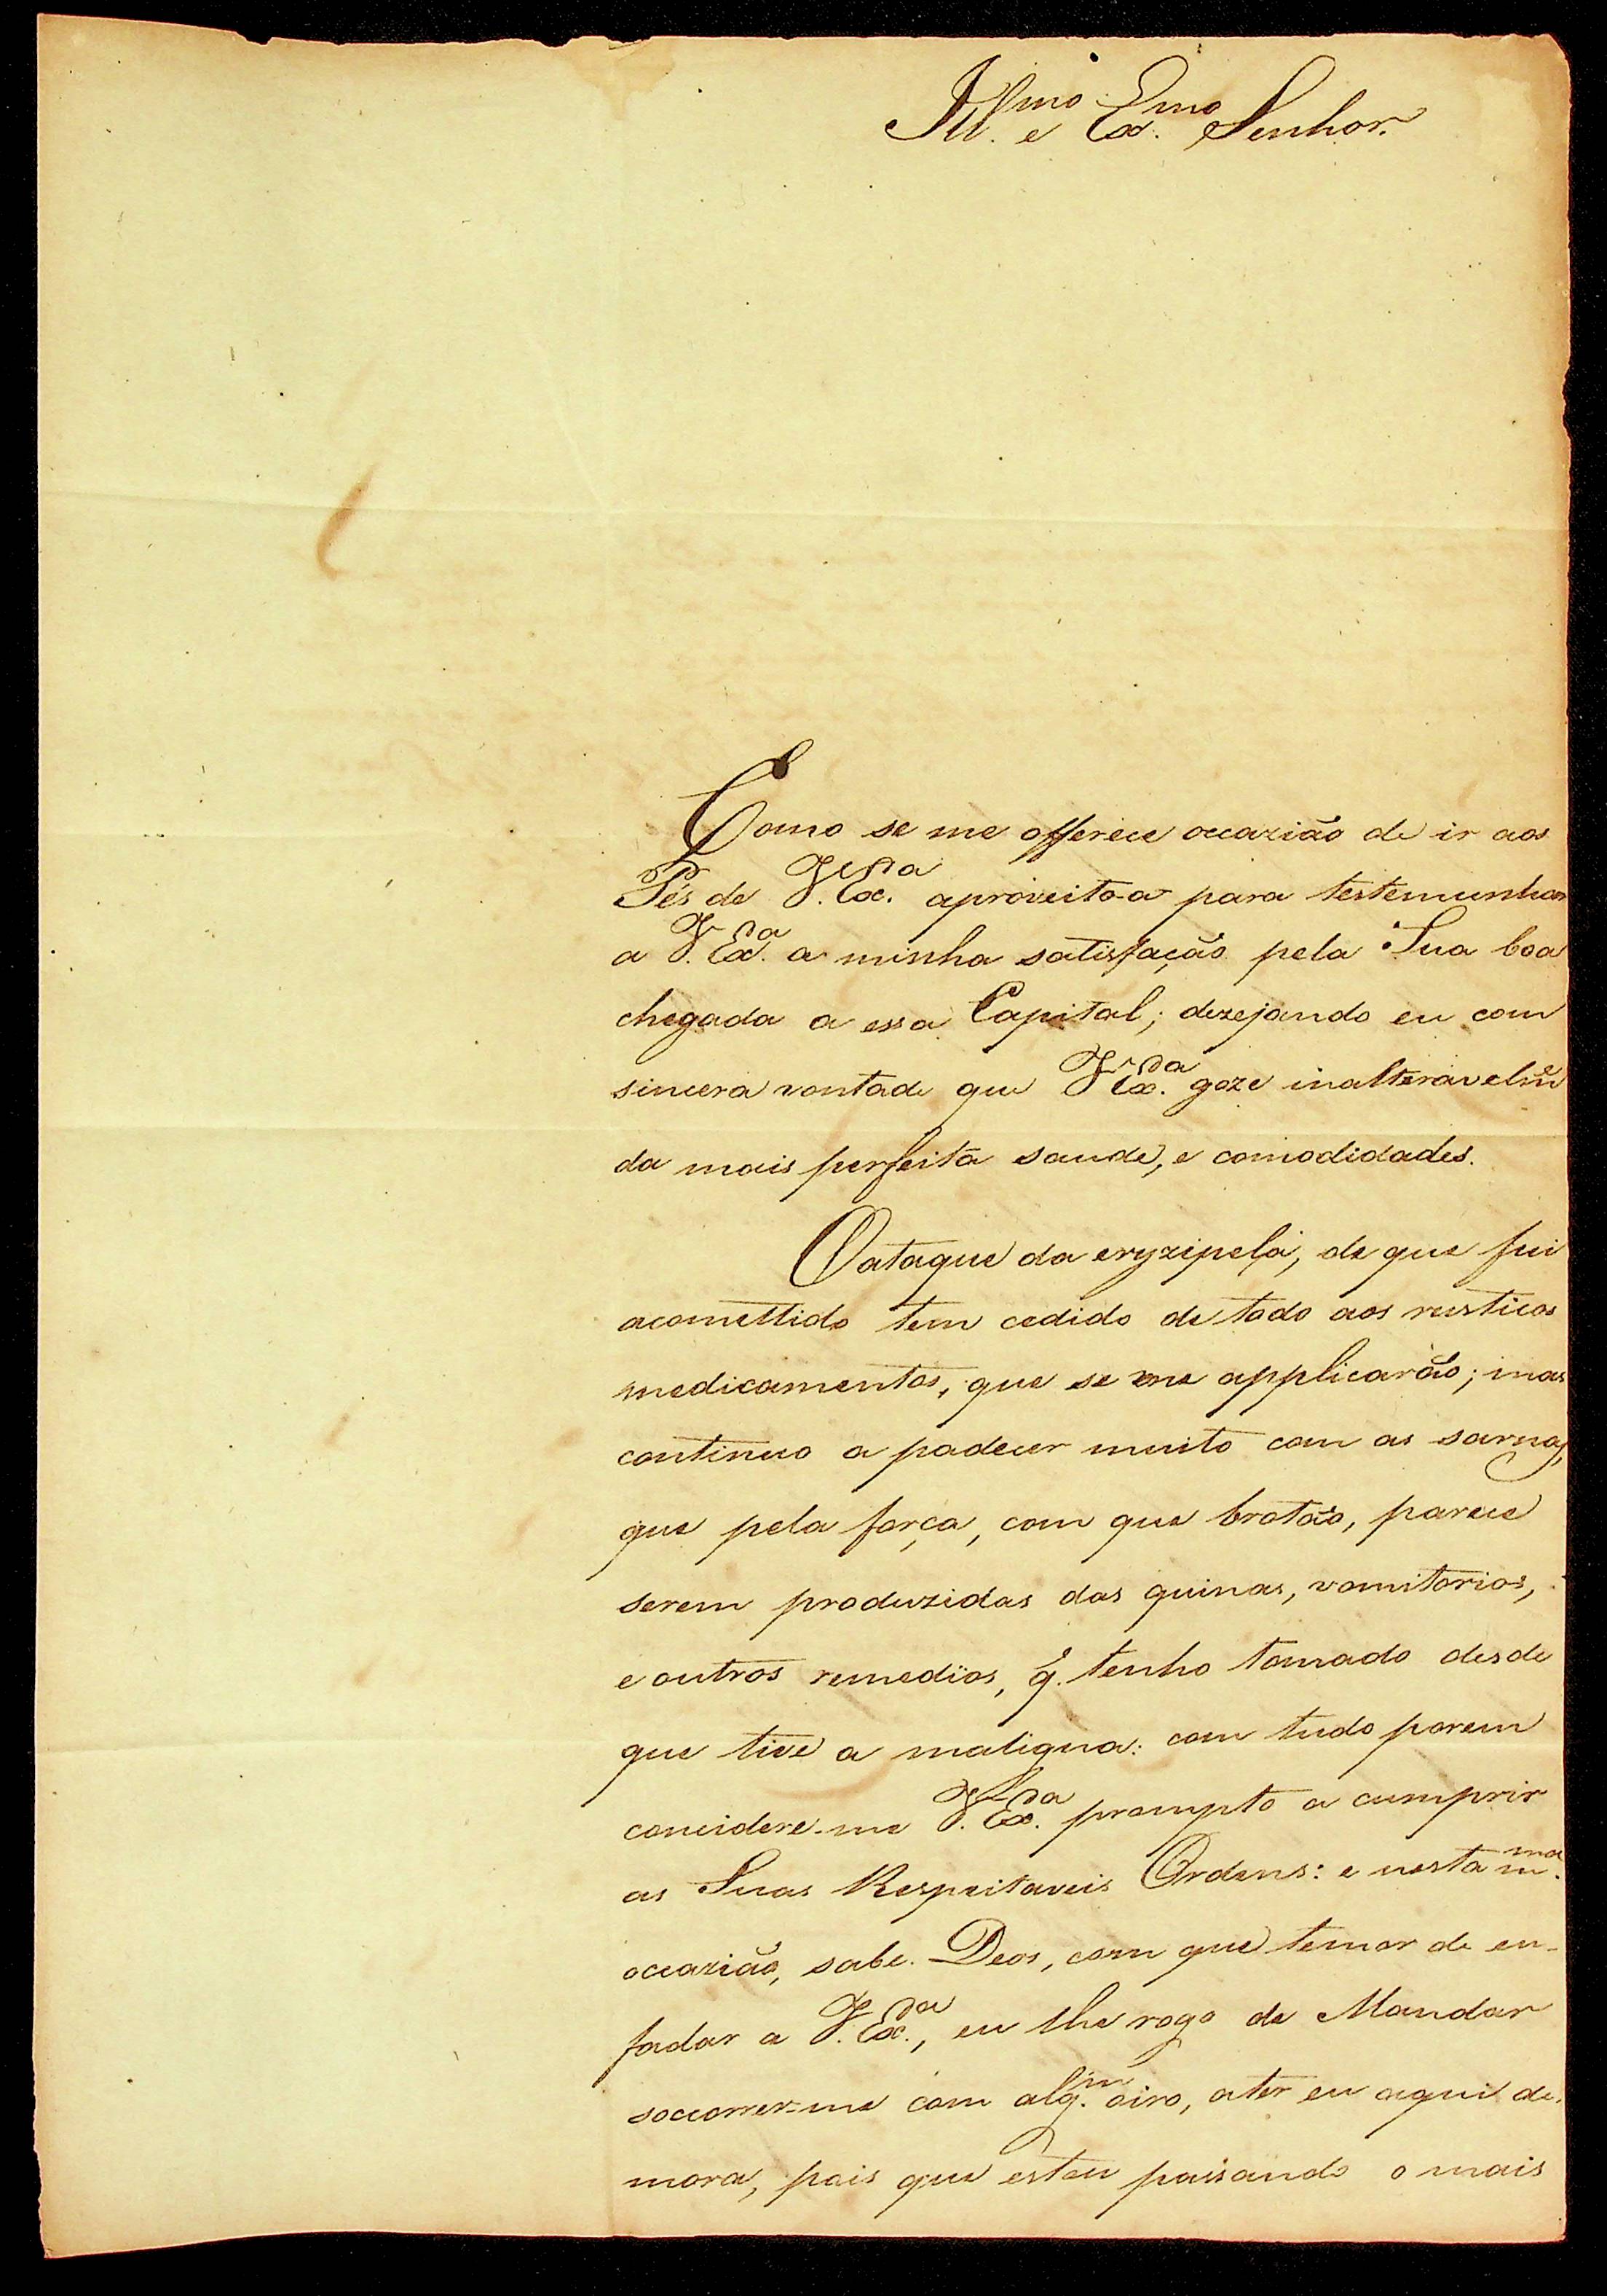 Ill.mo e Ex.mo Senhor.
Como se me offerece occazião de ir aos
Pés de V. Ex.a aproveito-a para testemunhar
a V. Ex.a a minha satisfação pela Sua boa
chegada a essa Capital; dezejando eu com
sincera vontade que V. Ex.a goze inalteravelm.e
da mais perfeita saude, e comodidades.
O ataque da eryzipela, de que fui
acomettido tem cedido de todo aos rusticos
medicamentos, que se me applicarão; mas
continuo a padecer muito com as sarnas,
que pela força, com que brotão, parece
serem produzidas das quinas, vomitorios,
e outros remedios, q. tenho tomado desde
que tive a maligna: com tudo porem
concidere-me V. Ex.a prompto a cumprir
as Suas Respeitaveis Ordens: e nesta m.ma
occazião, sabe Deos, com que temor de en-
fadar a V. Ex.a, eu lhe rogo de Mandar
soccorrer-me com alg.m oiro, a ter eu aqui de-
mora, pois que estou paisando o mais